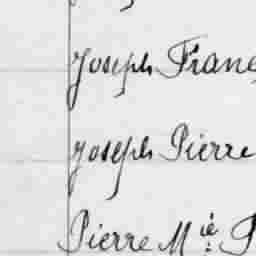 Joseph Franç
Joseph Pierre
Pierre Mie